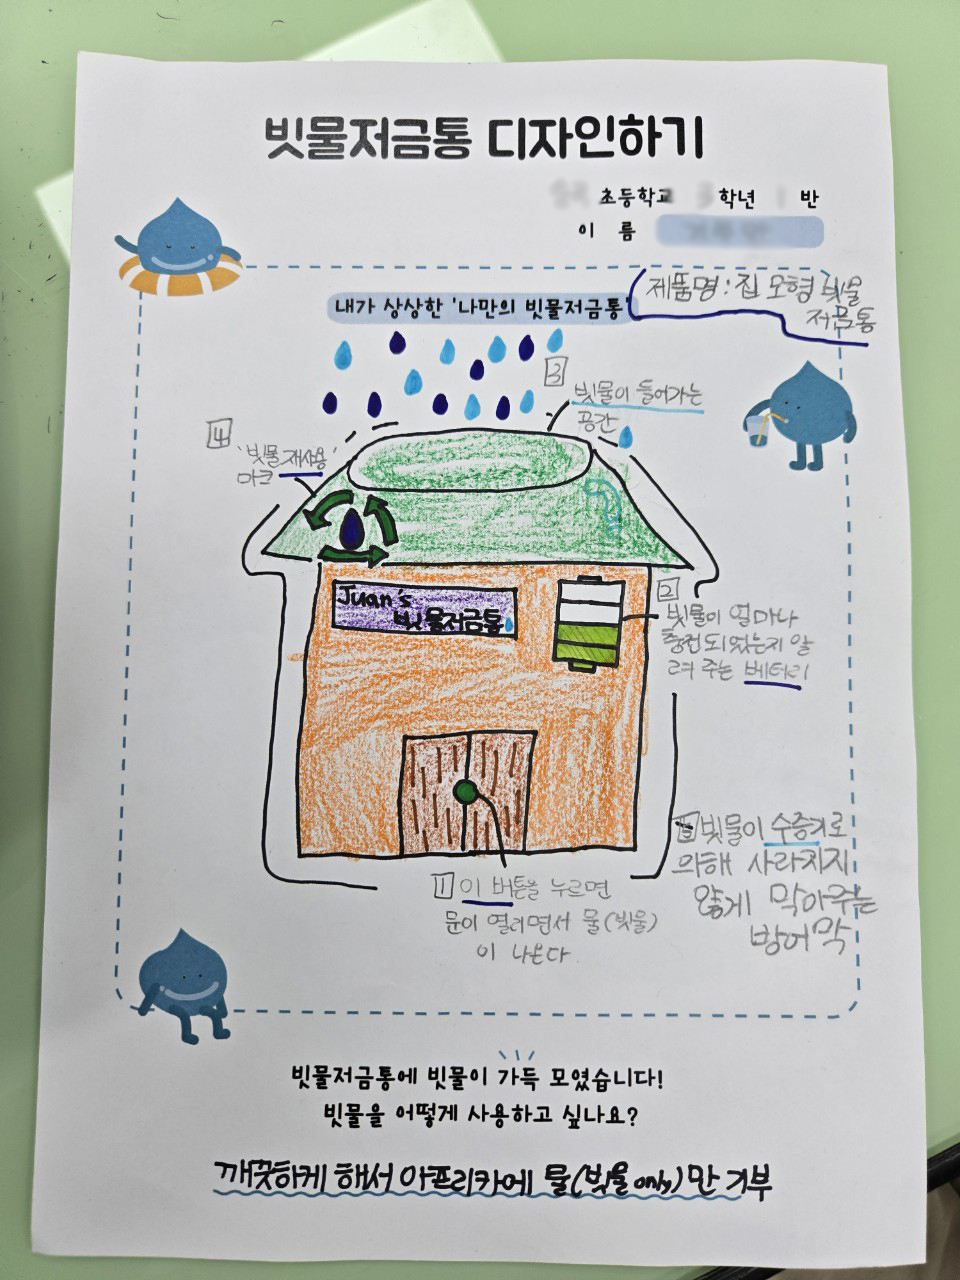 빗물저금통 디자인하기
초등학교 3학년 1 반
이 름
내가 상상한 '나만의 빗물저금통'
제품명 : 집 모형 빗물
저금통
3
빗물이 들어가는
공간
4
'빗물 재사용'
마크
Juan's
빗물저금통
2
빗물이 얼마나
충전되었는지 알
려 주는 베터리
5 빗물이 수증기로
의해 사라지지
않게 막아주는
방어막
1 이 버튼을 누르면
문이 열리면서 물(빗물)
이 나온다
빗물저금통에 빗물이 가득 모였습니다!
빗물을 어떻게 사용하고 싶나요?
깨끗하게 해서 아프리카에 물(빗물 only)만 기부